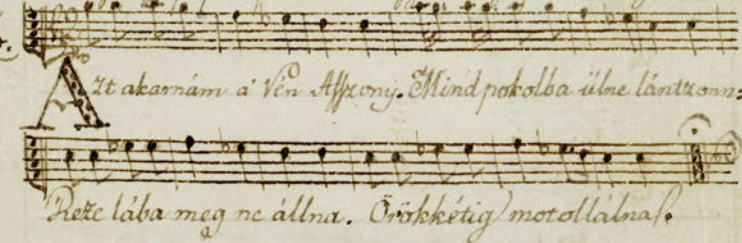 Azt akarnám a' Vén Aſſzony. Mind pokolba ülne lántzonn:
Keze lába meg ne állna. Örökkétig motollálna.